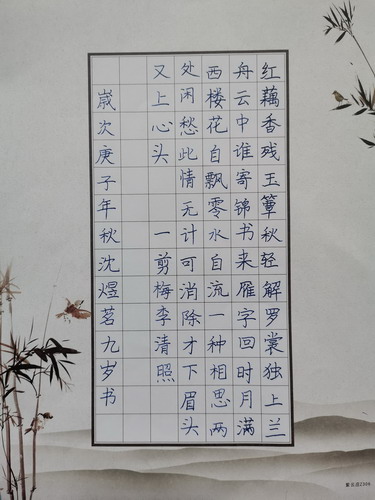 红藕香残玉簟秋轻解罗裳独上兰
舟云中谁寄锦书来雁字回时月满
西楼花自飘零水自流一种相思两
处闲愁此情无计可消除才下眉头
又上心头 一剪梅李清照
嵗次庚子年秋沈煜茗九岁书